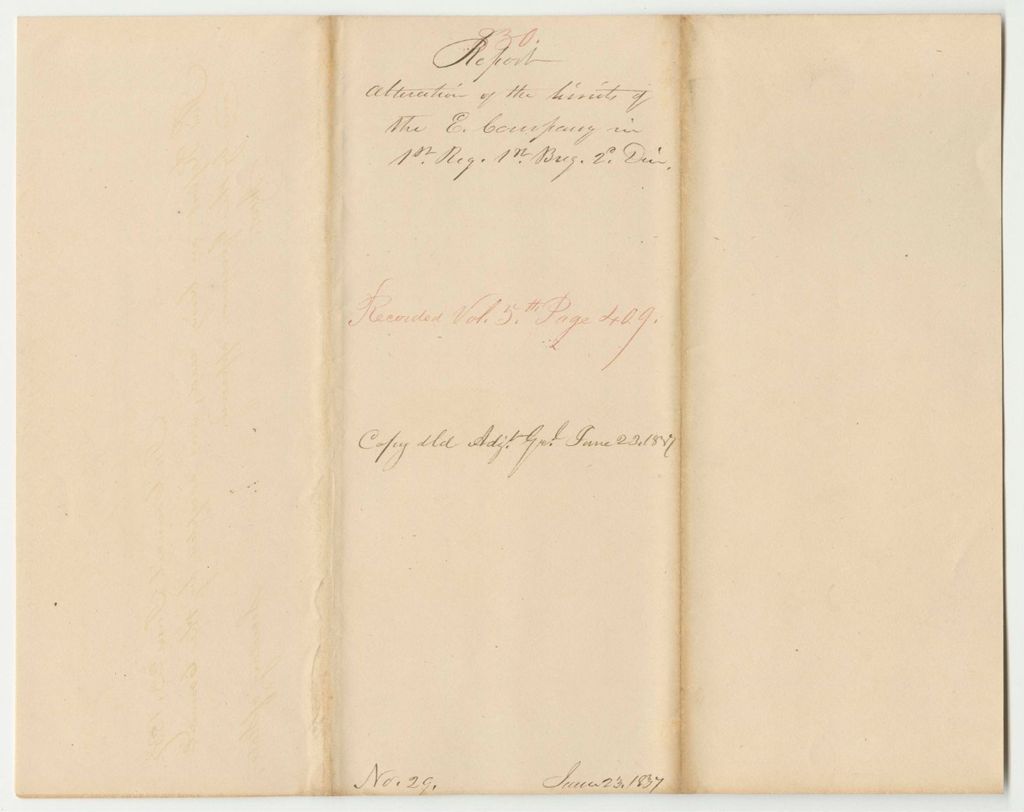 30.
Report
Alteration of the limits of
the E. Company in
1st. Reg. 1st. Brig. 2d. Div.
Recorded Vol. 5.th Page 409.
Copy dld Adjt. Gel. June 23. 1837
No. 29. June 23. 1837